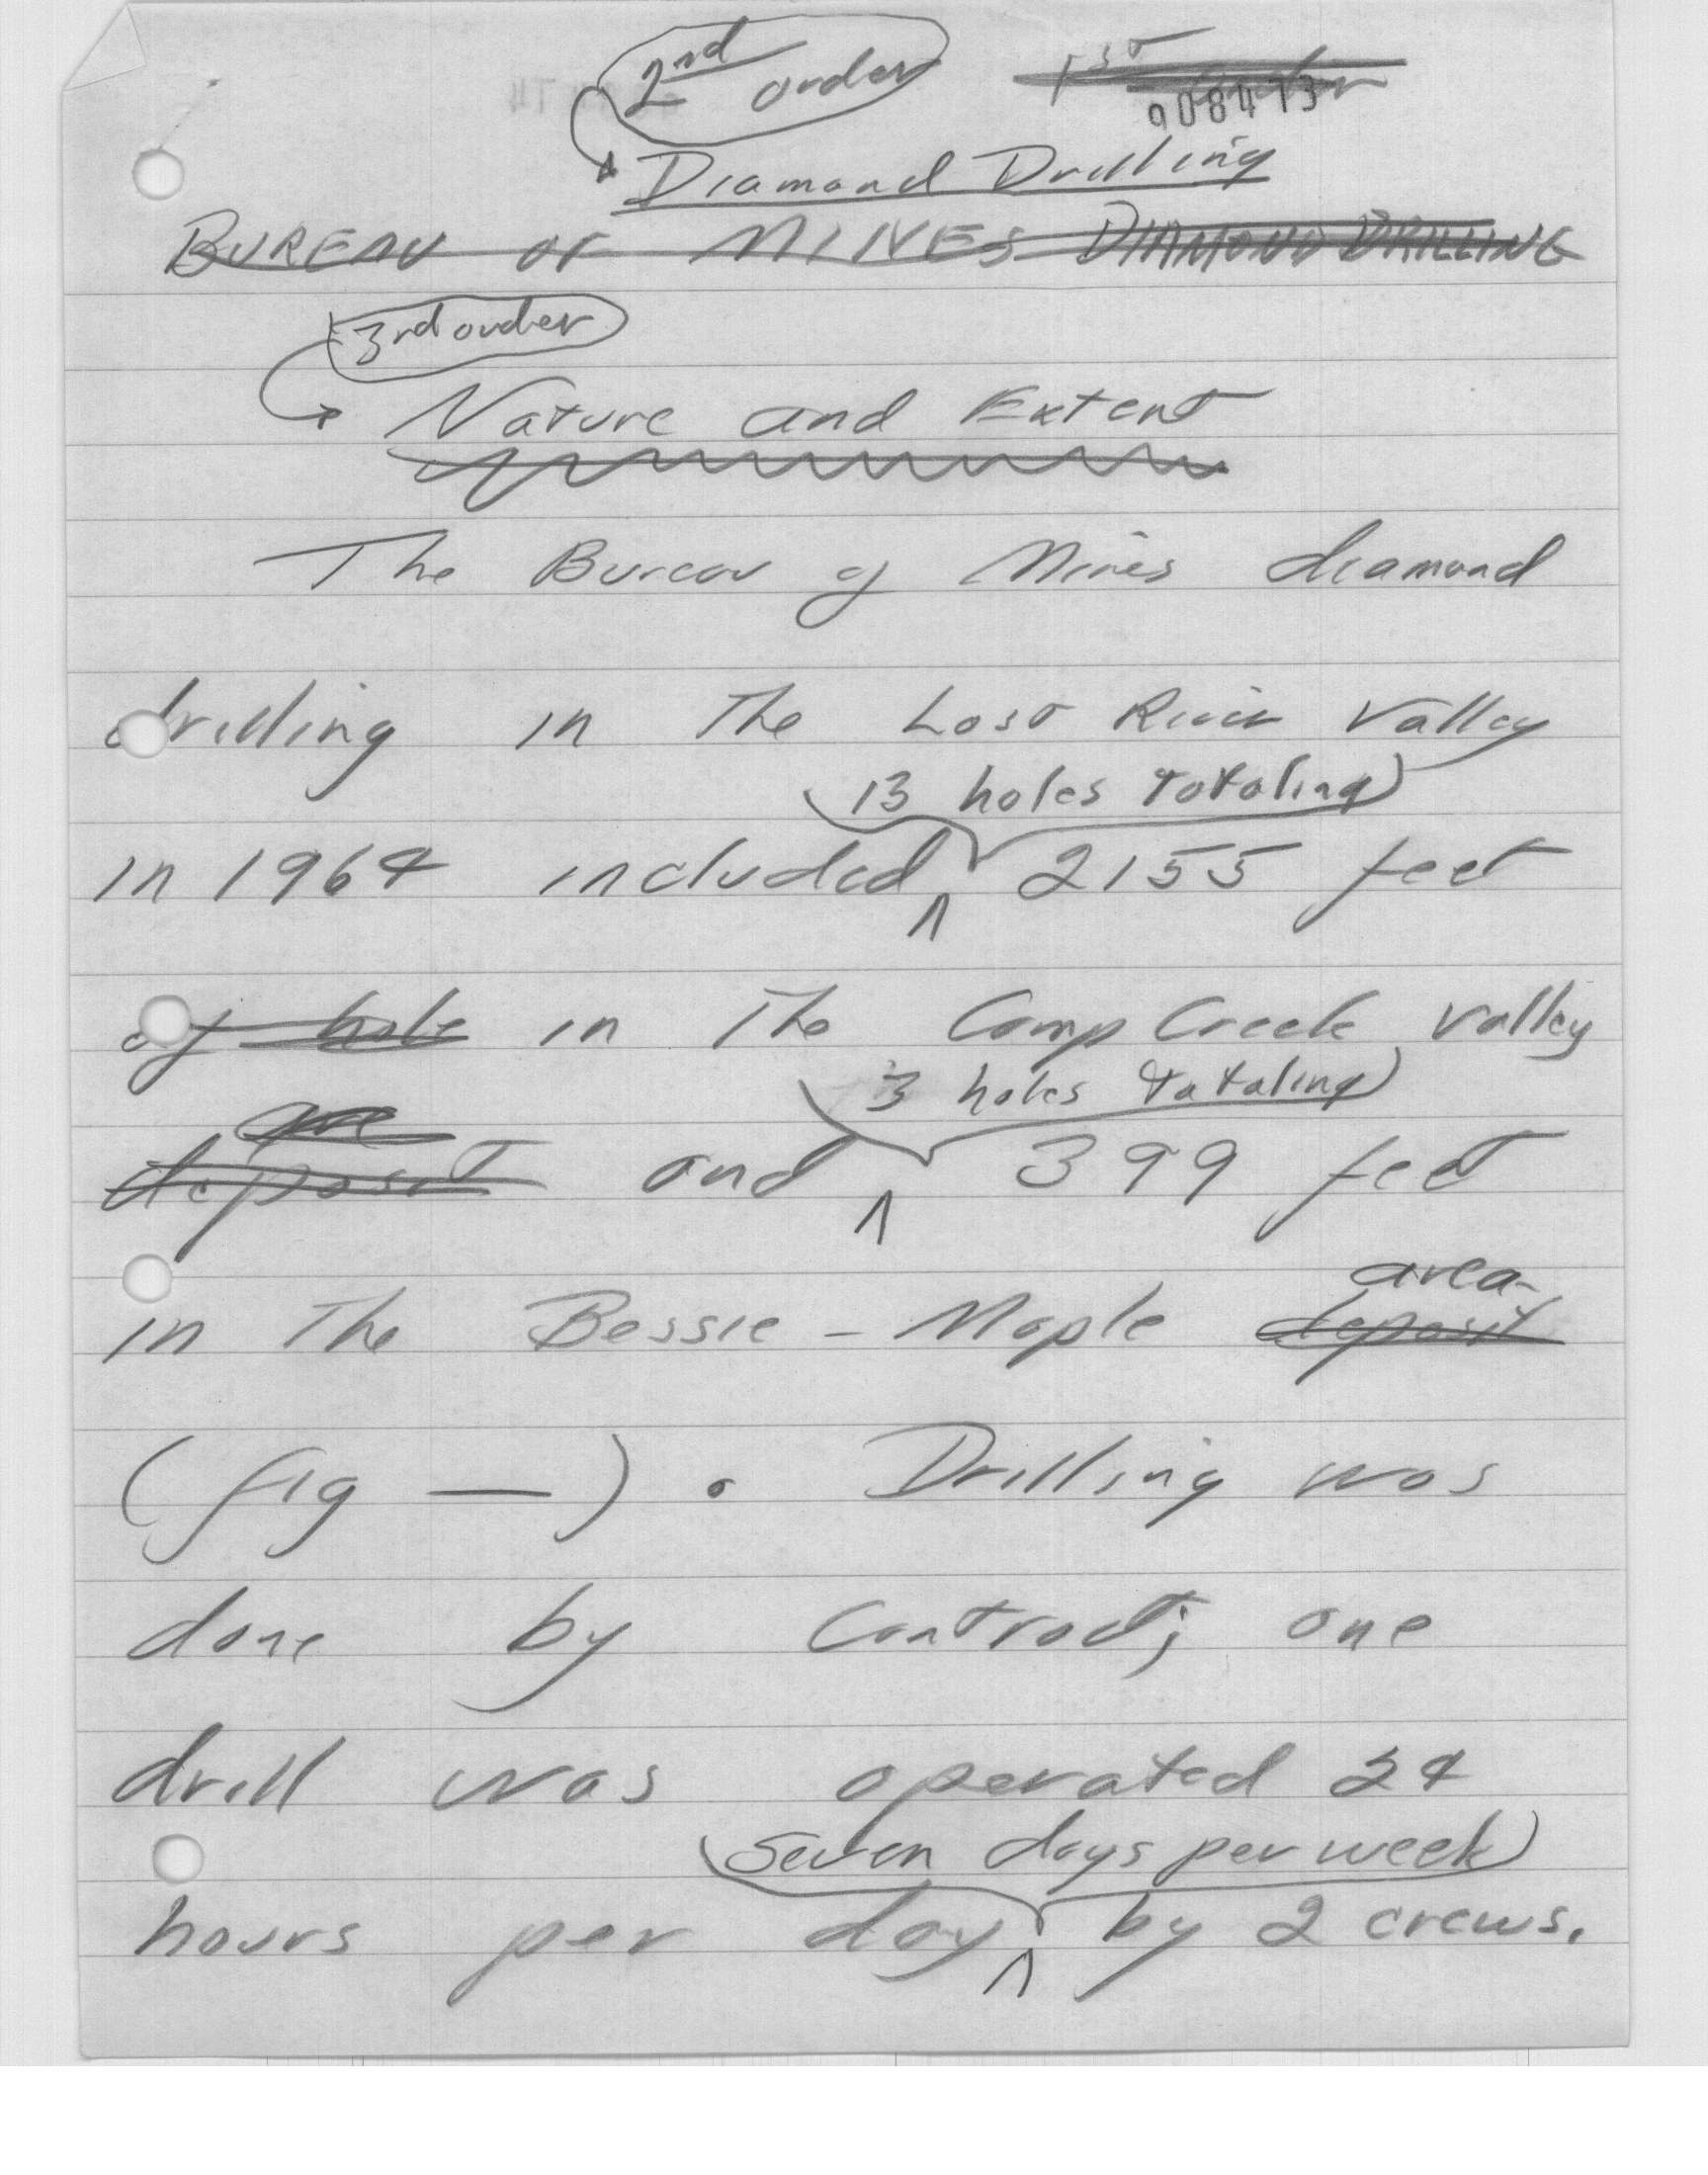 2nd order
1st order
008413
Diamond Drilling
BUREAU OF MINES DIAMOND DRILLING
3rd order
Nature and Extent
The Bureau of Mines diamond
drilling in The Lost River Valley
13 holes totaling
in 1964 included 2155 feet
of hole in The Camp Creek valley
3 holes totaling
are
deposit and 399 feet
area
in The Bessie - Maple deposit
(fig — ). Drilling was
done by Contract; one
drill was operated 24
seven days per week
hours per day by 2 crews.